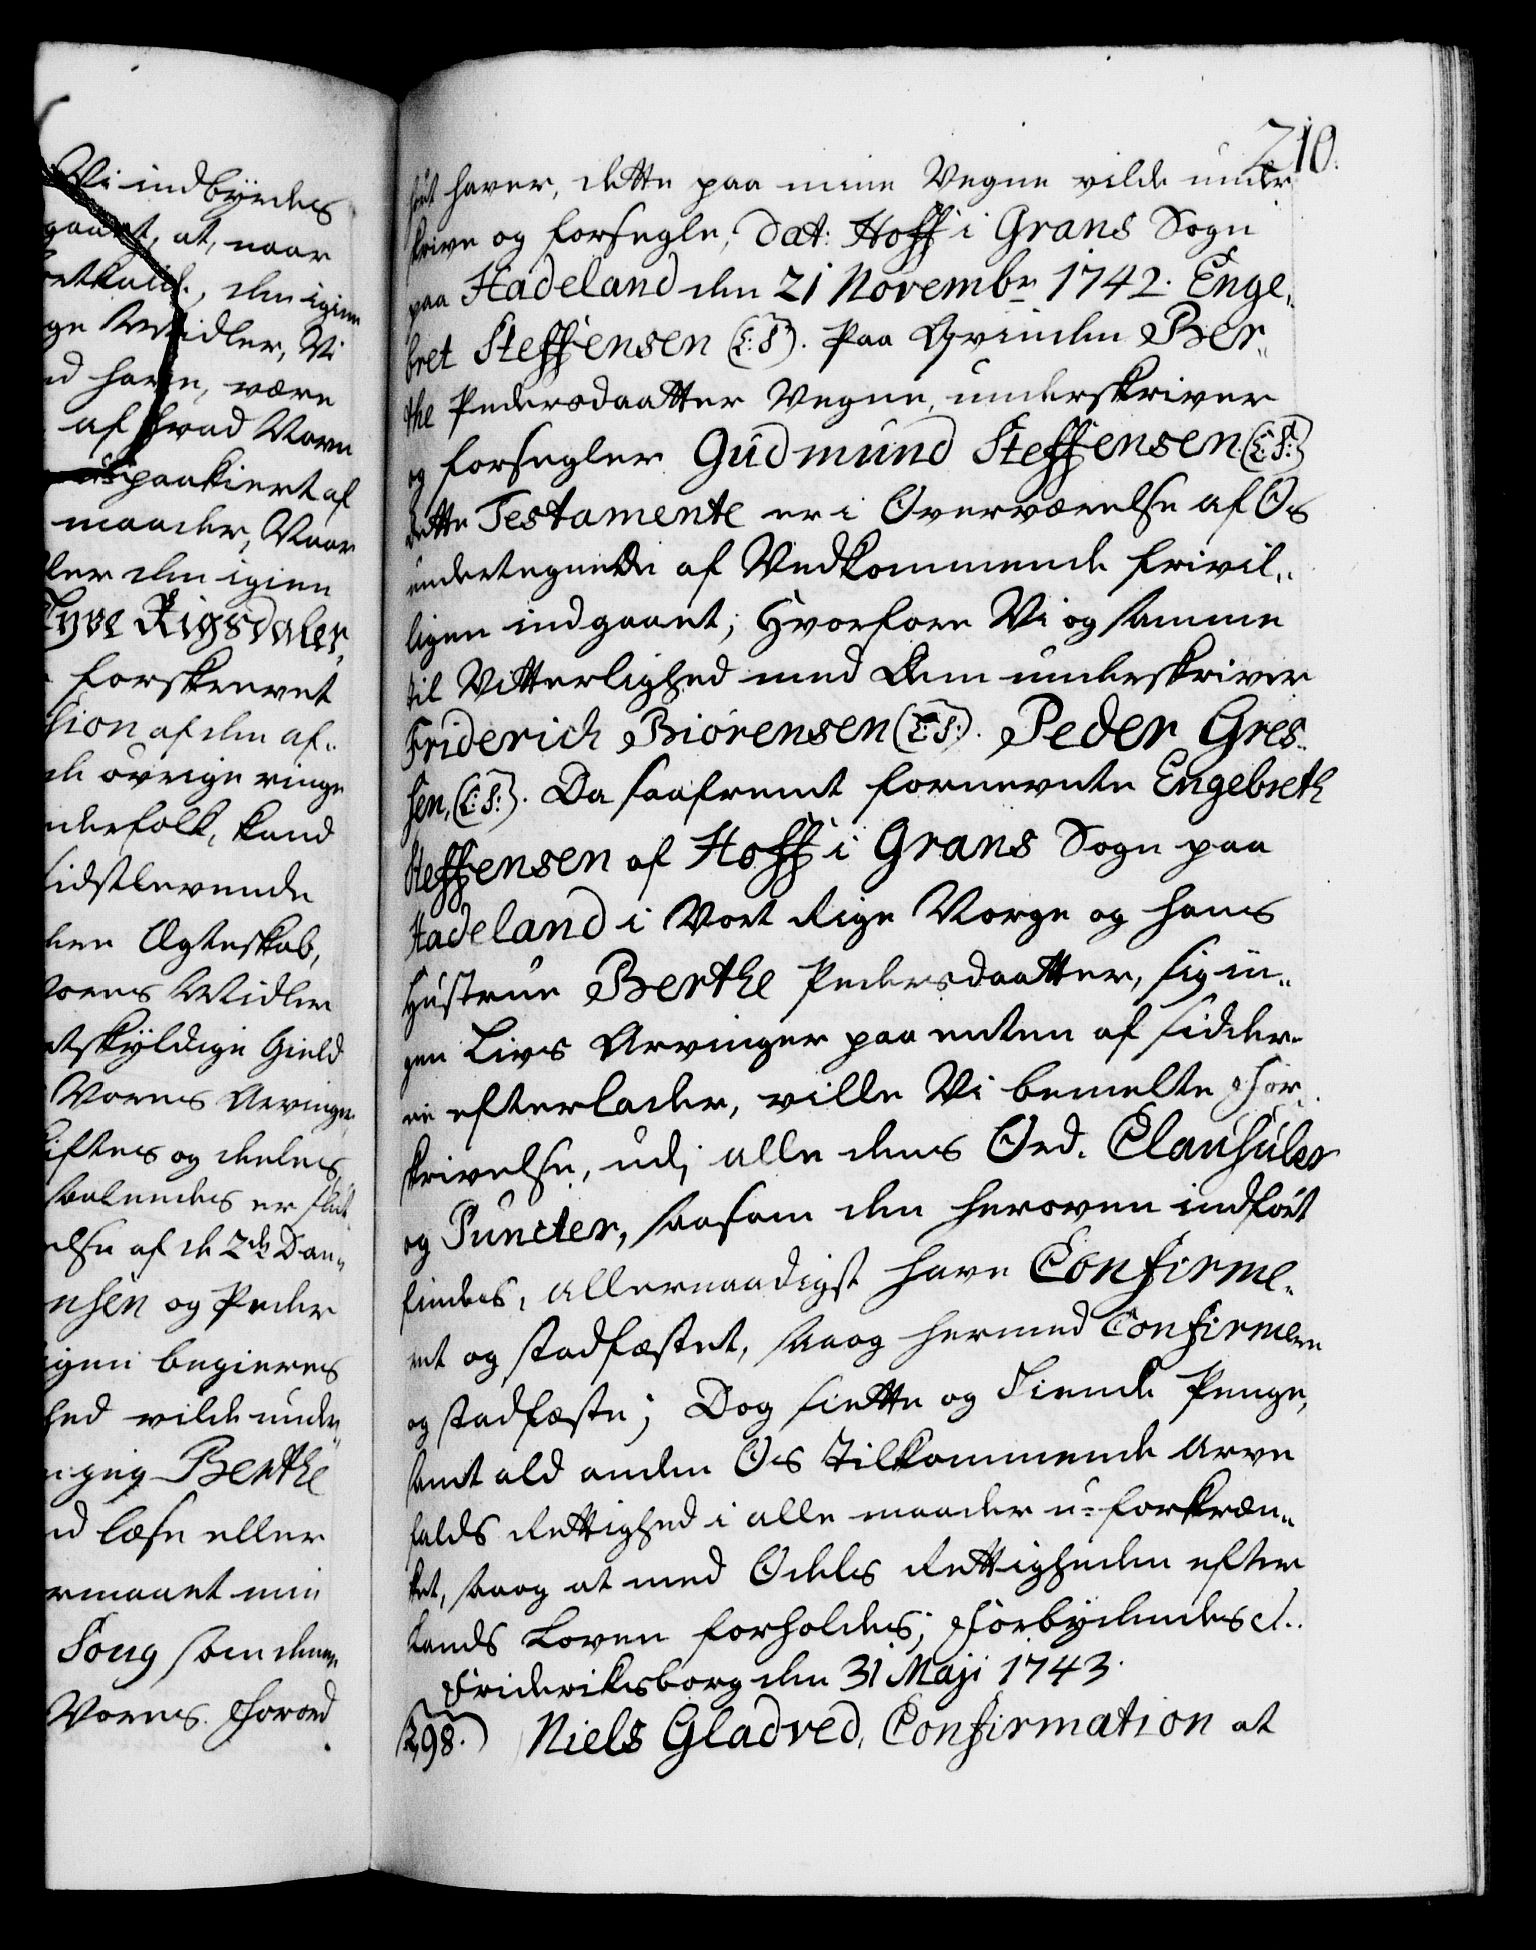 Vi indbyrdes
gaaet, at, naar
betkald, den igien
ge Midler, Vi
nd have, være
af hvad Navn
ispaakiert af
maader, Naar
ler den igien
Tyve Rigsdaler,
forskrevet
sion af den af„
de övrige ringe
nderfolk, kand
sidstlevende
den Ægteskab,
Vores Midler
etskyldige Gield
Vores Arvinge
skiftes og deeles
saaledes er slut„
else af de 2de Dan„
nsen og Peder
igen begieres
hed vilde unde„
n jeg Berthe
nd læse eller
rmaaet min
Song som denne
Vores Forord
210.
ført haver, dette paa mine Vegne vilde under
skrive og forsegle, Dat: Hoff i Grans Sogn
paa Hadeland den 21 Novembr 1742. Enge„
bret Steffensen (L:S:). Paa Qvinden Ber„
the Pedersdaatter Vegne, underskriver
og forsegler Gudmund Steffensen (L:S:)
Dette Testamente er i Overværelse af Os
undertegnede af Vedkommende frivil„
ligen indgaaet; Hvorfore Vi og samme
til Vitterlighed med Dem underskriver
Friderich Biörensen (L:S:). Peder Gres„
sen, (L:S:). Da saafremt fornevnte Engebreth
Steffensen af Hoff i Grans Sogn paa
Hadeland i Vort Rige Norge og hans
Hustrue Berthe Pedersdaatter, sig in„
gen Livs Arvinger paa enten af sidder„
ne efterlader, ville Vi bemelte For„
skrivelse, udi alle dens Ord, Clausuler
og Puncter, saasom den heroven indfört
findes, allernaadigst have Confirme„
ret og stadfæstet, saa og hermed Confirmere
og stadfæste; Dog siette og Tiende Penge,
samt ald anden Os Tilkommende Arve
falds Rettighed i alle maader u-forkræn„
ket, saa og at med Odels Rettigheden efter
Lands Loven forholdes; Forbydendes etc.
Frideriksborg den 31 Maji 1743.
298.) Niels Gladved, Confirmation at